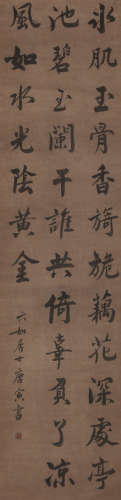 氷肌玉骨香旖旎藕花深處亭
池碧玉闌干誰共倚辜負了涼
風如水光陰黄金
六如居士唐寅書